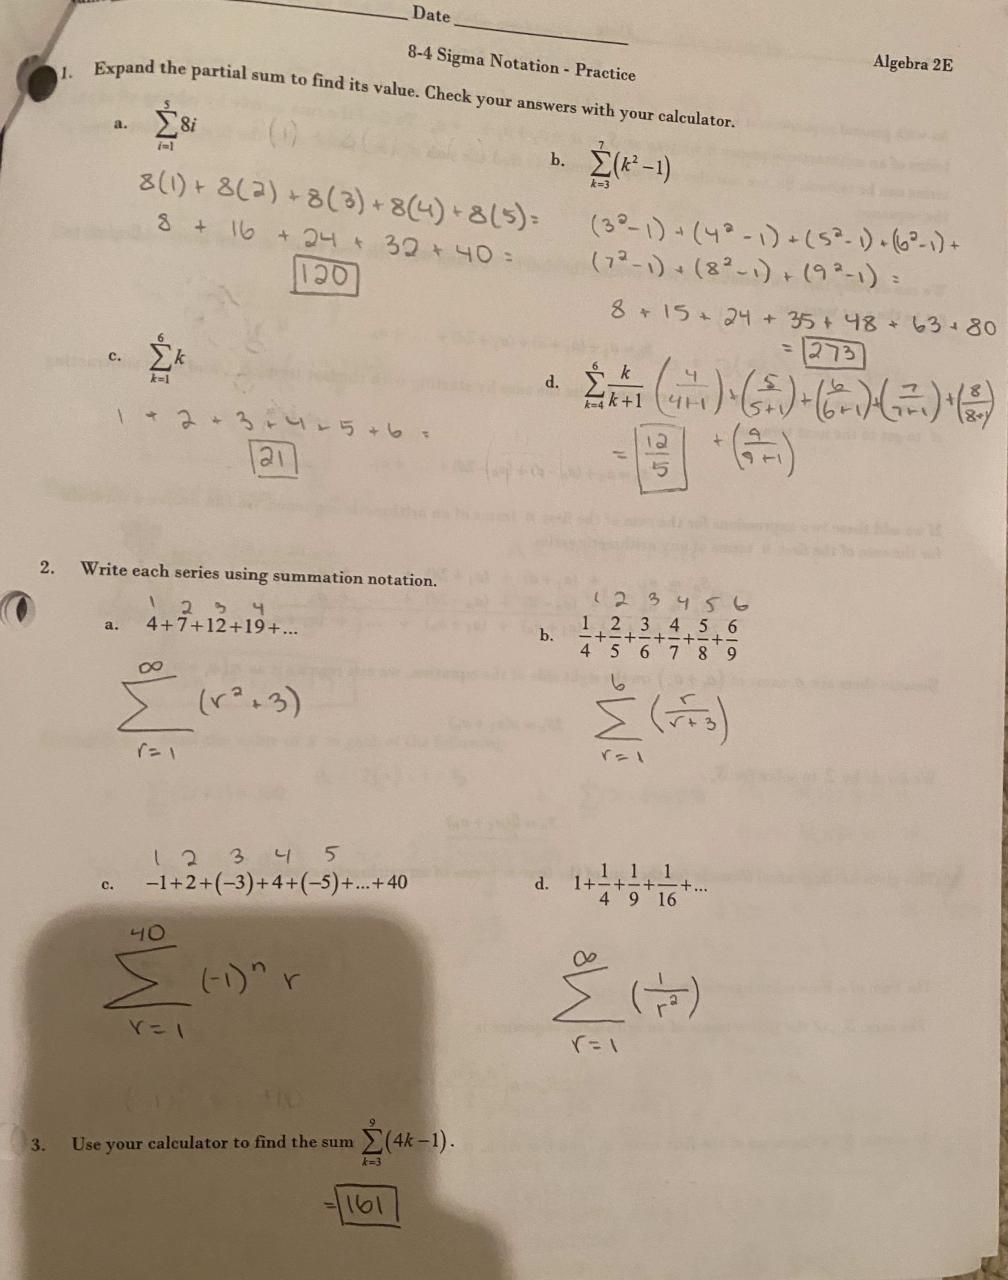 Date
8-4 Sigma Notation - Practice
Algebra 2E
1. Expand the partial sum to find its value. Check your answers with your calculator.
a. \sum_{i=1}^{5} 8i
8(1) + 8(2) + 8(3) + 8(4) + 8(5) =
8 + 16 + 24 + 32 + 40 =
120
b. \sum_{k=3}^{7} (k² - 1)
(3² - 1) + (4² - 1) + (5² - 1) + (6² - 1) +
(7² - 1) + (8² - 1) + (9² - 1) =
8 + 15 + 24 + 35 + 48 + 63 + 80
= 273
c. \sum_{k=1}^{6} k
1 + 2 + 3 + 4 + 5 + 6 =
21
d. \sum_{k=4}^{6} \frac{k}{k+1} (\frac{4}{4+1}) + (\frac{5}{5+1}) + (\frac{6}{6+1}) + (\frac{7}{7+1}) + (\frac{8}{8+1})
= \frac{12}{5} + (\frac{9}{9+1})
2. Write each series using summation notation.
1 2 3 4
a. 4+7+12+19+...
\sum_{r=1}^{∞} (r² + 3)
1 2 3 4 5 6
b. \frac{1}{4}+\frac{2}{5}+\frac{3}{6}+\frac{4}{7}+\frac{5}{8}+\frac{6}{9}
\sum_{r=1}^{6} (\frac{r}{r+3})
1 2 3 4 5
c. -1+2+(-3)+4+(-5)+...+40
\sum_{r=1}^{40} (-1)^n r
d. 1+\frac{1}{4}+\frac{1}{9}+\frac{1}{16}+...
\sum_{r=1}^{∞} (\frac{1}{r²})
3. Use your calculator to find the sum \sum_{k=3}^{9} (4k-1).
= 161